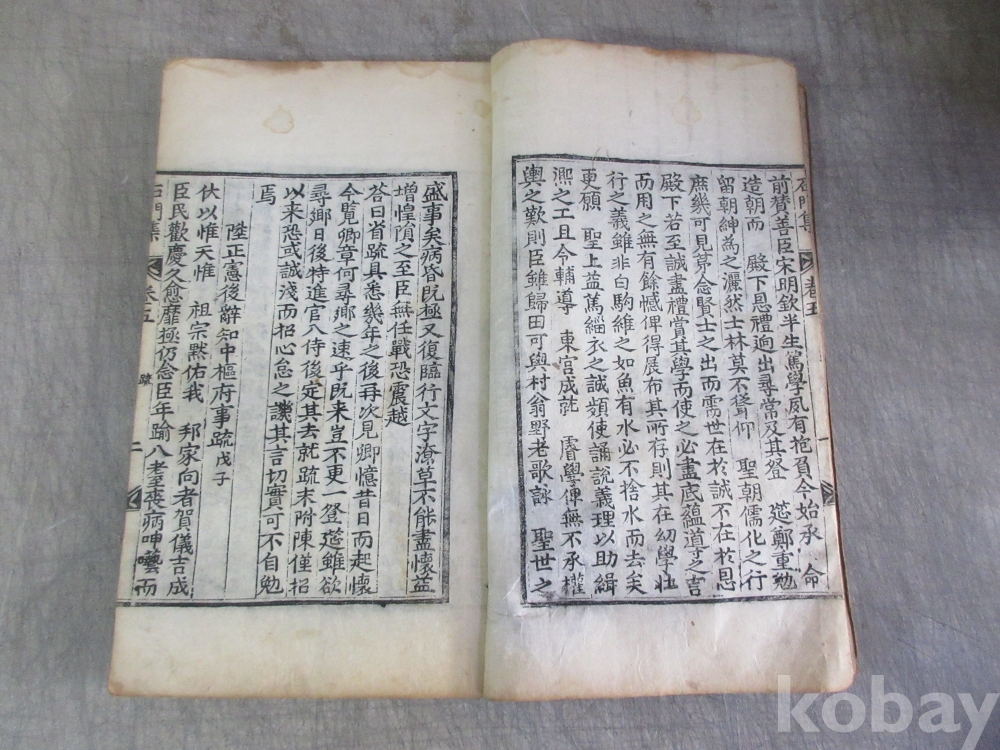 石門集 卷五 一
前贊善臣宋明欽半生篤學夙有抱負今始承 命
造朝而 殿下恩禮逈出尋常及其登 筵鄭重勉
留朝紳為之灑然士林莫不聳仰 聖朝儒化之行
庶幾可見苐念賢士之出而需世在於誠不在於恩
殿下若至誠盡禮賞其學而使之必盡底蘊導之吉
而用之無有餘憾俾得展布其所存則其在幼學壯
行之義雖非白駒維之如魚有水必不捨水而去矣
更願 聖上益篤緇衣之誠頻使誦說義理以助緝
熙之工且令輔導 東宮成就 睿學俾無不承權
輿之歎則臣雖歸田可與村翁野老歌詠 聖世之
盛事矣病昏旣極又復臨行文字潦草不能盡懷益
增惶隕之至臣無任戰恐震越
答曰省疏具悉幾年之後再次見卿憶昔日而起懷
今覽卿章何尋鄉之速乎旣来豈不更一登筵雖欲
尋鄉日後特進官入侍後定其去就疏末附陳僅招
以来恐或誠淺而招心怠之譏其言切實可不自勉
焉
陞正憲後辭知中樞府事疏戊子
伏以惟天惟 祖宗黙佑我 邦家向者賀儀吉成
臣民歡慶久愈靡極仍念臣年踰八耋喪病呻囈而
石門集 卷五 疏 二
kobay